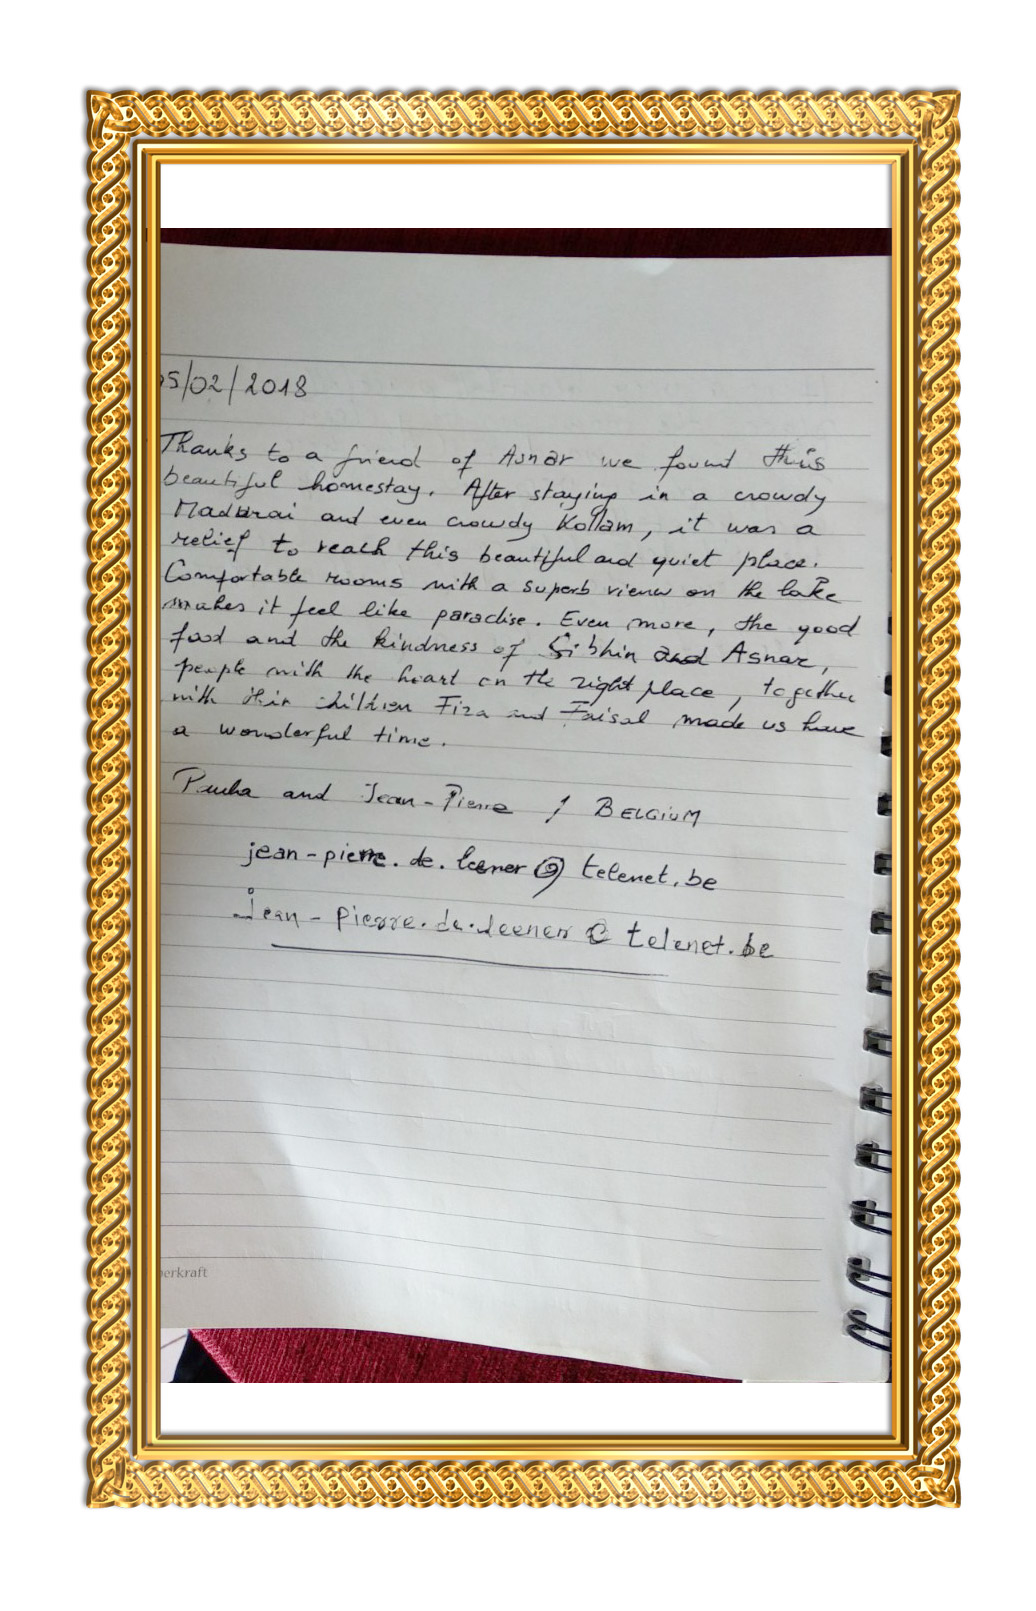 05/02/2018
Thanks to a friend of Asnar we found this
beautiful homestay. After staying in a crowdy
Madurai and even crowdy Kollam, it was a
relief to reach this beautiful and quiet place.
Comfortable rooms with a superb view on the lake
makes it feel like paradise. Even more, the good
food and the kindness of Sibhin and Asnar,
people with the heart on the right place, together
with their children Fiza and Faisal made us have
a wonderful time.
and Jean-Pierre / BELGIUM
jean-pierre.de.leener@telenet.be
jean-pierre.de.leener@telenet.be
erkraft